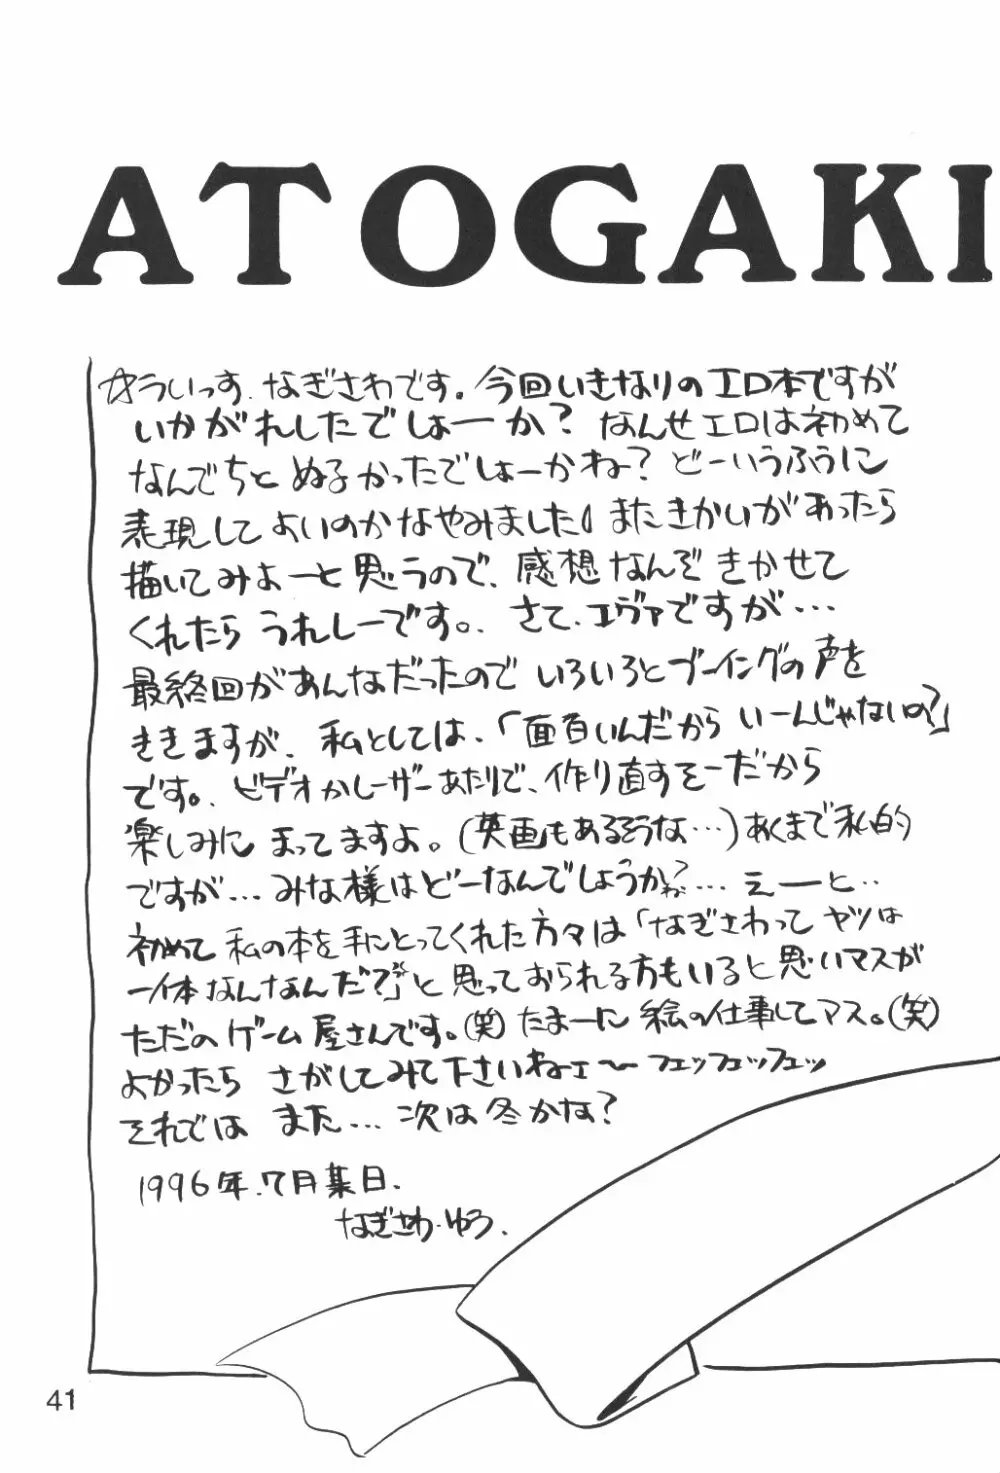 ATOGAKI
☆ういっす、なぎさわです。今回いきなりのエロ本ですが
いかがれしたでしょーか?なんせエロは初めて
なんでちと ぬるかったでしょーかね?どーいうふうに
表現してよいのかなやみました。またきかいがあったら
描いてみよーと思うので、感想なんぞきかせて
くれたら うれしーです。さて、エヴァですが…
最終回があんなだったので いろいろとブーイングの声を
ききますが、私としては、「面白いんだから いーんじゃないの?」
です。ビデオかレーザーあたりで、作り直すそーだから
楽しみに まってますよ。(英画もあるそうな…)あくまで私的
ですが…みな様はどーなんでしょうかね?…えーと‥
初めて 私の本を手にとってくれた方々は「なぎさわって ヤツは
一体なんなんだ?」と思っておられる方もいると思いマスが
ただのゲーム屋さんです。(笑)たまーに 絵の仕事してマス。(笑)
よかったら さがしてみて下さいねェ〜 フェッフェッフェッ
それでは また…次は冬かな?
1996年.7月某日.
なぎさわ・ゆう.
41